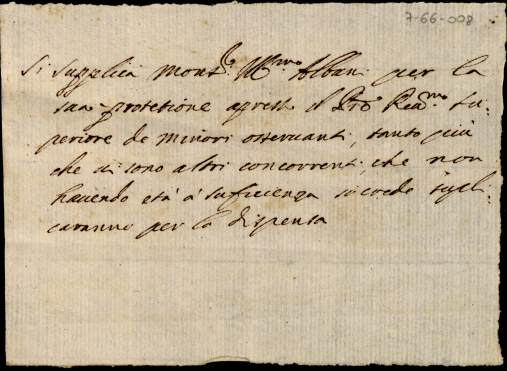 7-66-008
Si supplica Mons.r Ill.mo Albani per la
sua protetione apress il Pre Reu.mo Su:
periore de minori osseruanti, tanto più
che ui sono altri concorrenti, che non
hauendo età à sufficienza si crede suppli:
caranno per la dispensa